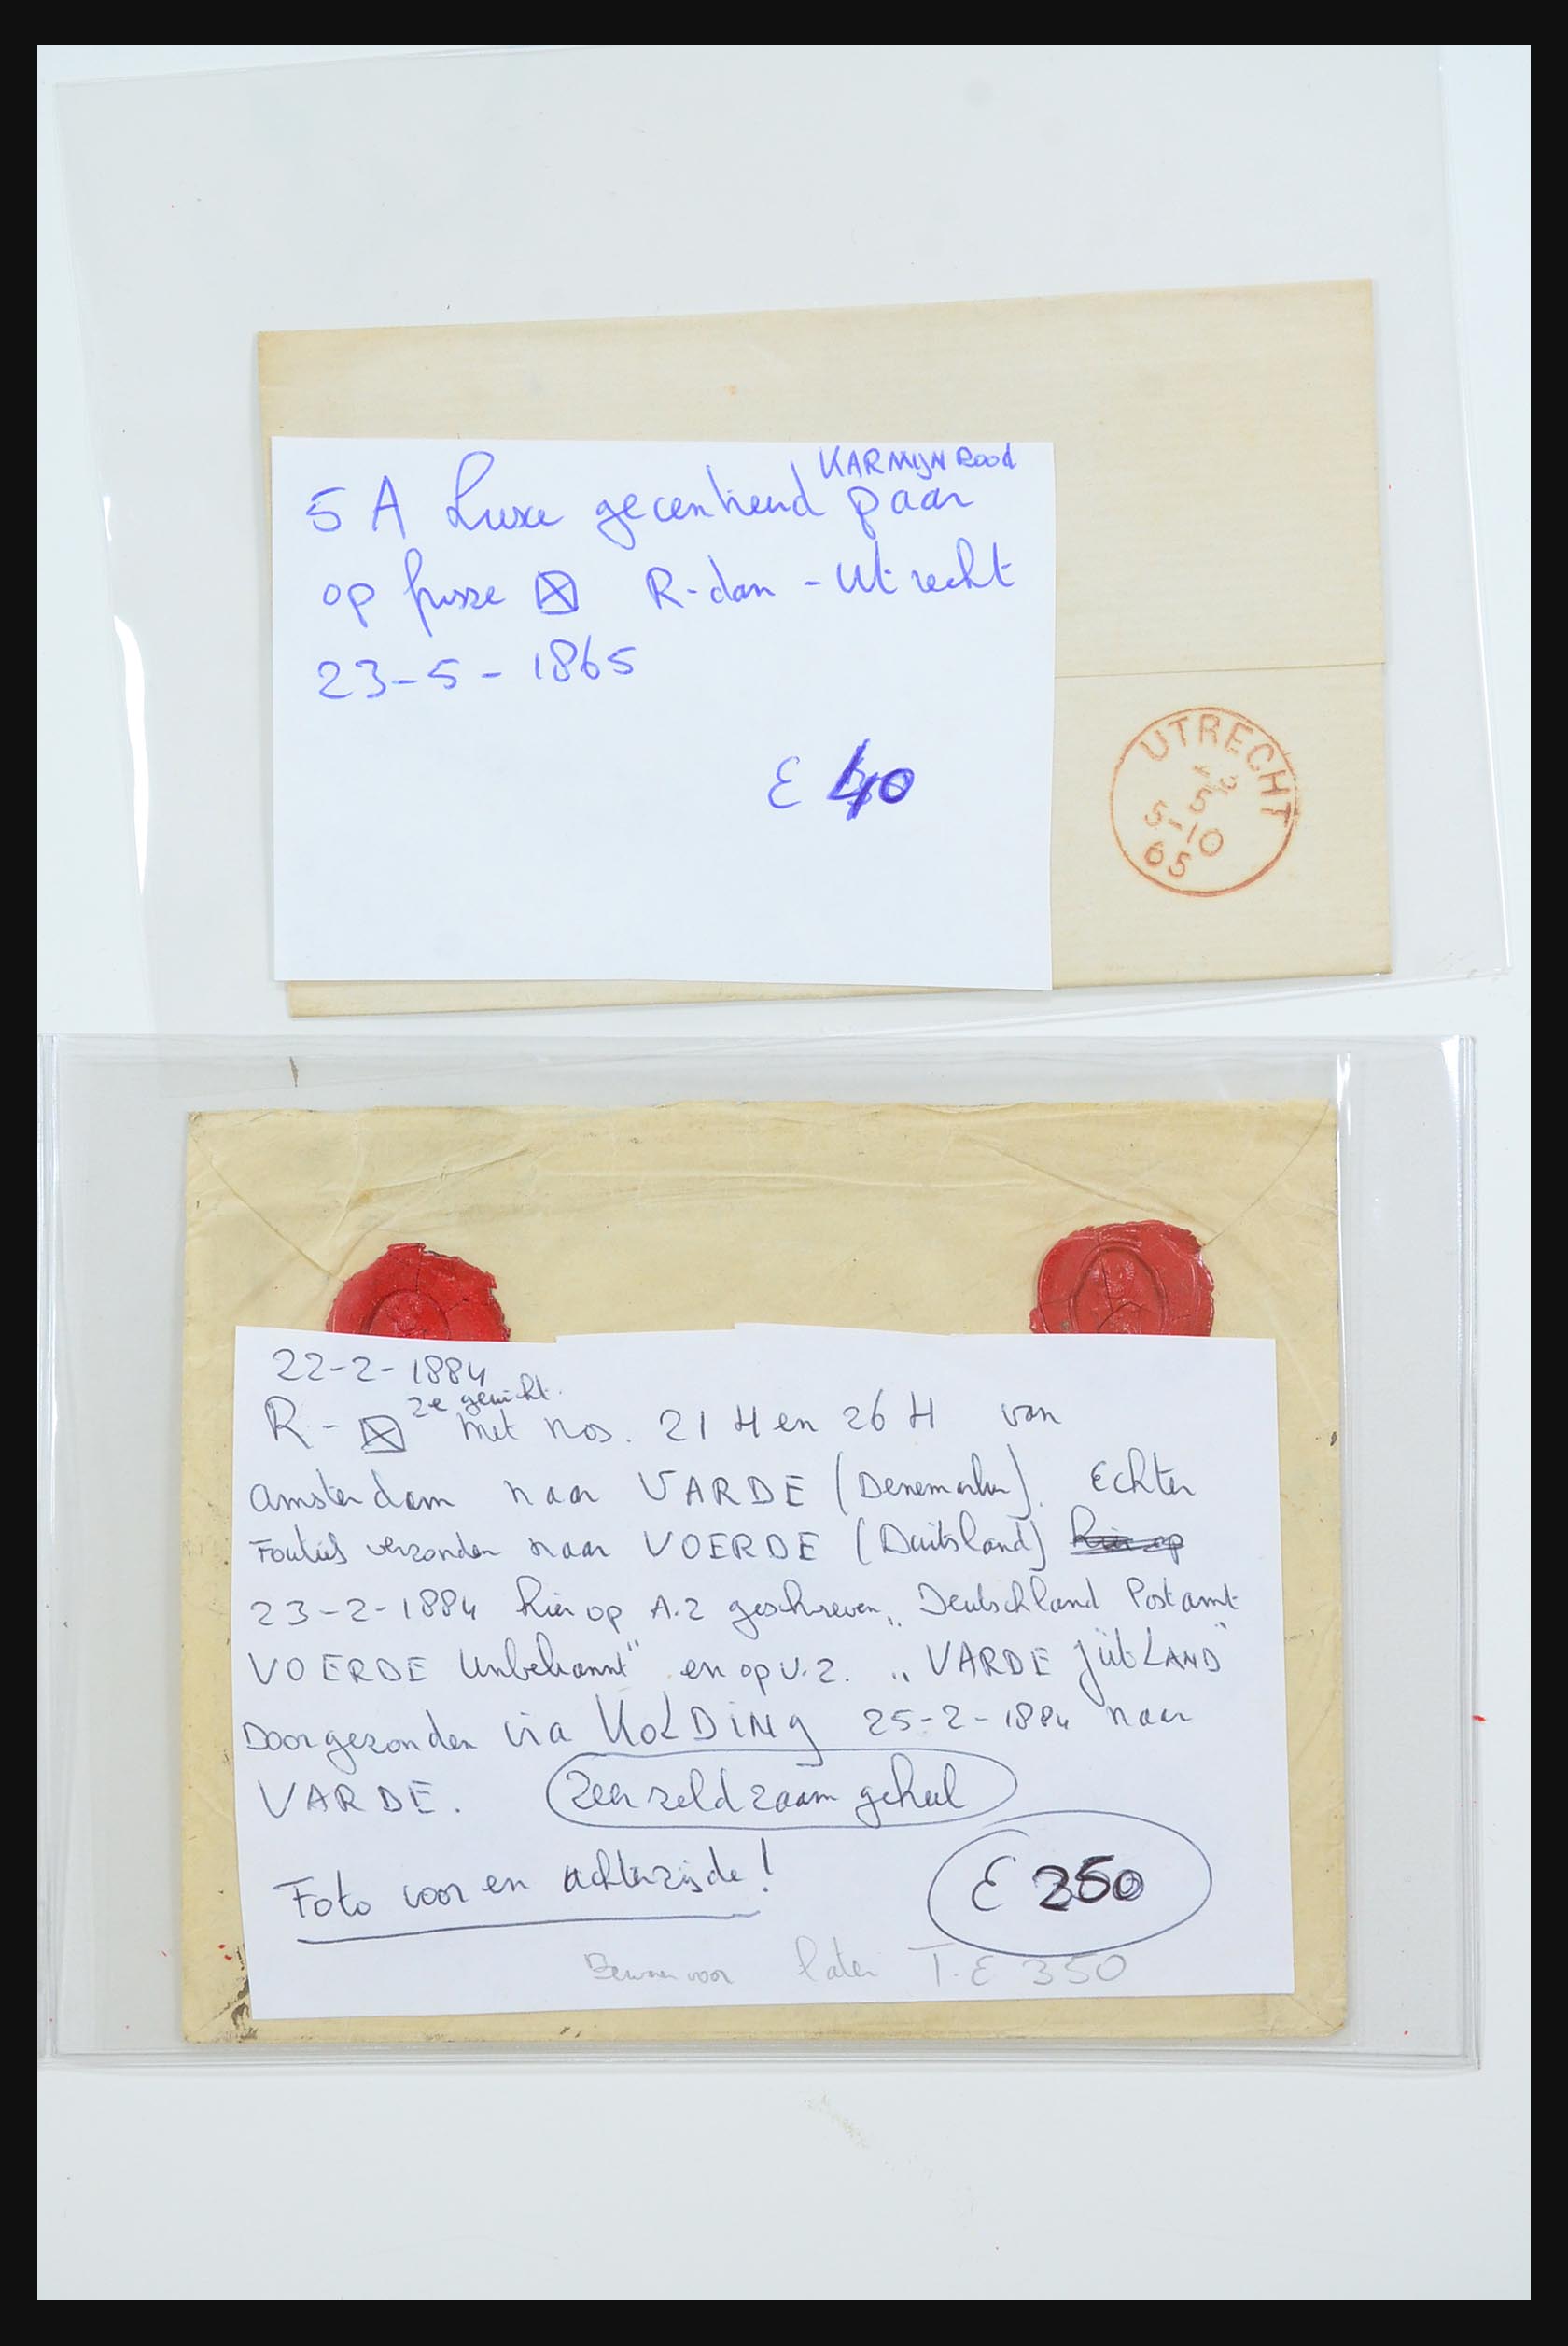 KARMIJN Rood
5 A Luxe gecentreerd paar
op frisse R-dam - Utrecht
23-5-1865
E 40
UTRECHT
23
5
5-10
65
22-2-1884
2e gewicht.
R- met nos. 21 H en 26 H van
Amsterdam naar VARDE (Denemarken). Echter
Foutief verzonden naar VOERDE (Duitsland) hier op
23-2-1884 hier op A.2 geschreven „Deutschland Postamt
VOERDE Unbekannt" en op V.2. „VARDE JütLAND"
Doorgezonden via KOLDING 25-2-1884 naar
VARDE. Zeer zeldzaam geheel
Foto voor en achterzijde!
E 350
Bewaren voor later T. E 350